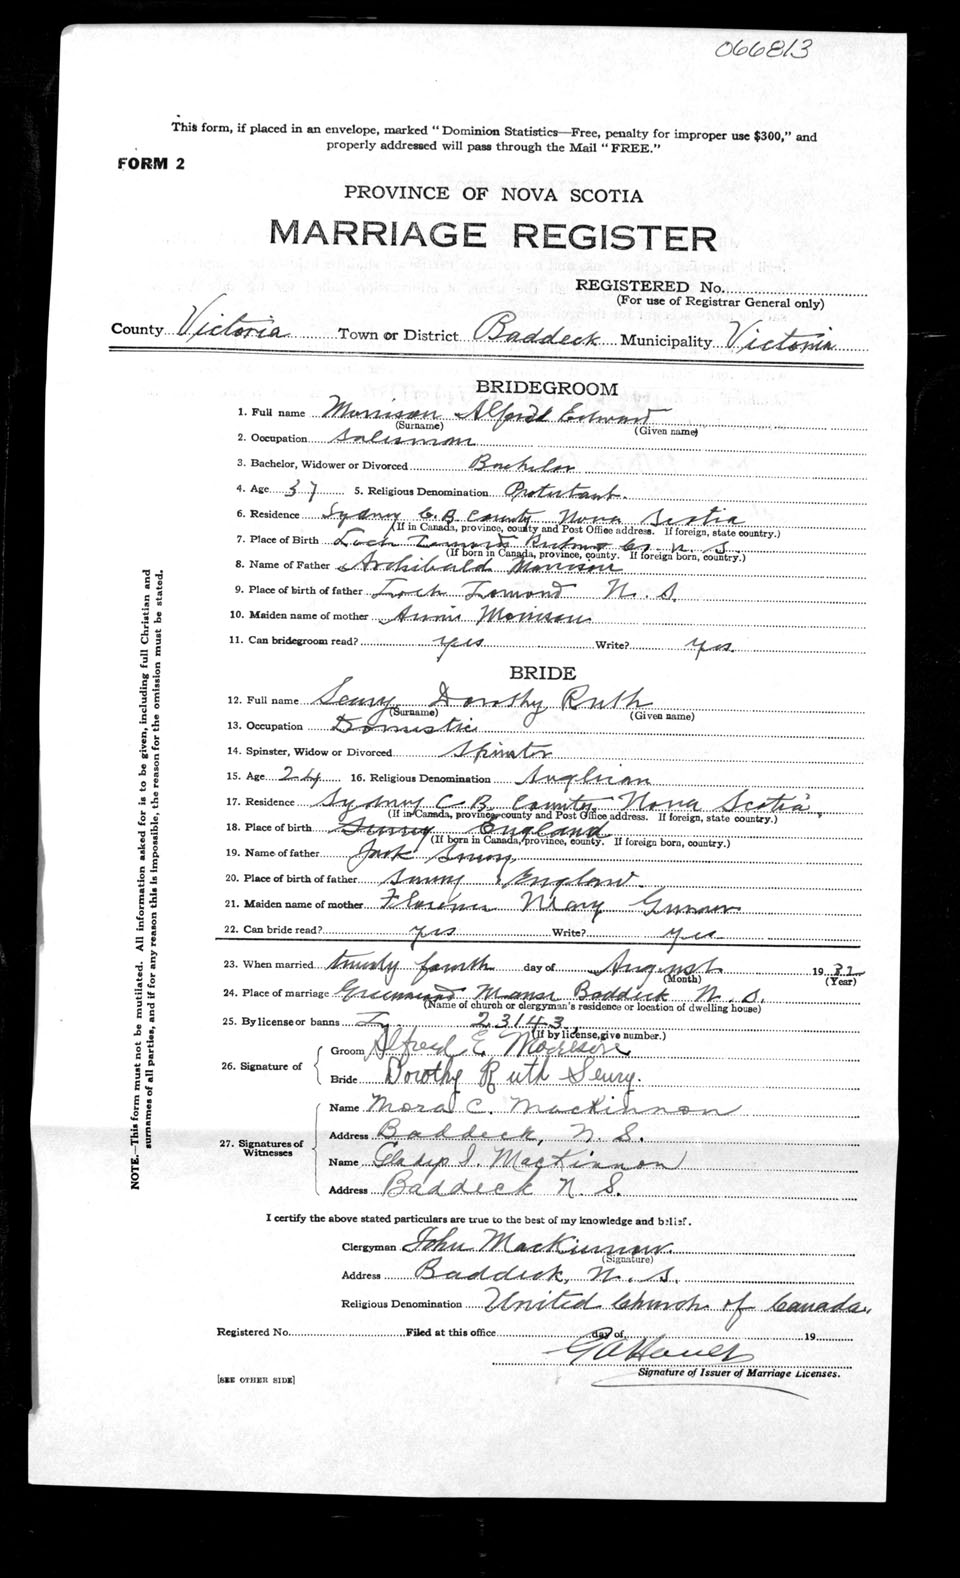 066813
This form, if placed in an envelope, marked "Dominion Statistics—Free, penalty for improper use $300," and
properly addressed will pass through the Mail "FREE."
FORM 2
PROVINCE OF NOVA SCOTIA
MARRIAGE REGISTER
REGISTERED No.
(For use of Registrar General only)
County Victoria Town or District Baddeck Municipality Victoria
BRIDEGROOM
1. Full name Morrison Alfred Edward
(Surname) (Given name)
2. Occupation Salesman
3. Bachelor, Widower or Divorced Bachelor
4. Age 37 5. Religious Denomination Protestant.
6. Residence Sydney C.B. County Nova Scotia
(If in Canada, province, county and Post Office address. If foreign, state country.)
7. Place of Birth Loch Lomond Richmond Co. N. S.
(If born in Canada, province, county. If foreign born, country.)
8. Name of Father Archibald Morrison
9. Place of birth of father Loch Lomond N. S.
10. Maiden name of mother Annie Morrison
11. Can bridegroom read? yes Write? yes.
BRIDE
12. Full name Seury Dorothy Ruth
(Surname) (Given name)
13. Occupation Domestic
14. Spinster, Widow or Divorced Spinster
15. Age 24 16. Religious Denomination Anglican
17. Residence Sydney C.B. County Nova Scotia
(If in Canada, province, county and Post Office address. If foreign, state country.)
18. Place of birth England
(If born in Canada, province, county. If foreign born, country.)
19. Name of father Jack
20. Place of birth of father England.
21. Maiden name of mother Florence Mary
22. Can bride read? yes Write? yes
23. When married twenty fourth day of August 1932
(Month) (Year)
24. Place of marriage Greenwood Manse Baddeck N. S.
(Name of church or clergyman's residence or location of dwelling house)
25. By license or banns L 23143
(If by license, give number.)
26. Signature of
Groom Alfred E Morrison
Bride Dorothy Ruth Seury.
27. Signatures of Witnesses
Name Mora C. MacKinnon
Address Baddeck, N. S.
Name Gladys I. MacKinnon
Address Baddeck N. S.
I certify the above stated particulars are true to the best of my knowledge and belief.
Clergyman John MacKinnon.
(Signature)
Address Baddeck, N. S.
Religious Denomination United Church of Canada.
Registered No. Filed at this office day of 19
Signature of Issuer of Marriage Licenses.
[SEE OTHER SIDE]
NOTE.—This form must not be mutilated. All information asked for is to be given, including full Christian and
surnames of all parties, and if for any reason this is impossible, the reason for the omission must be stated.